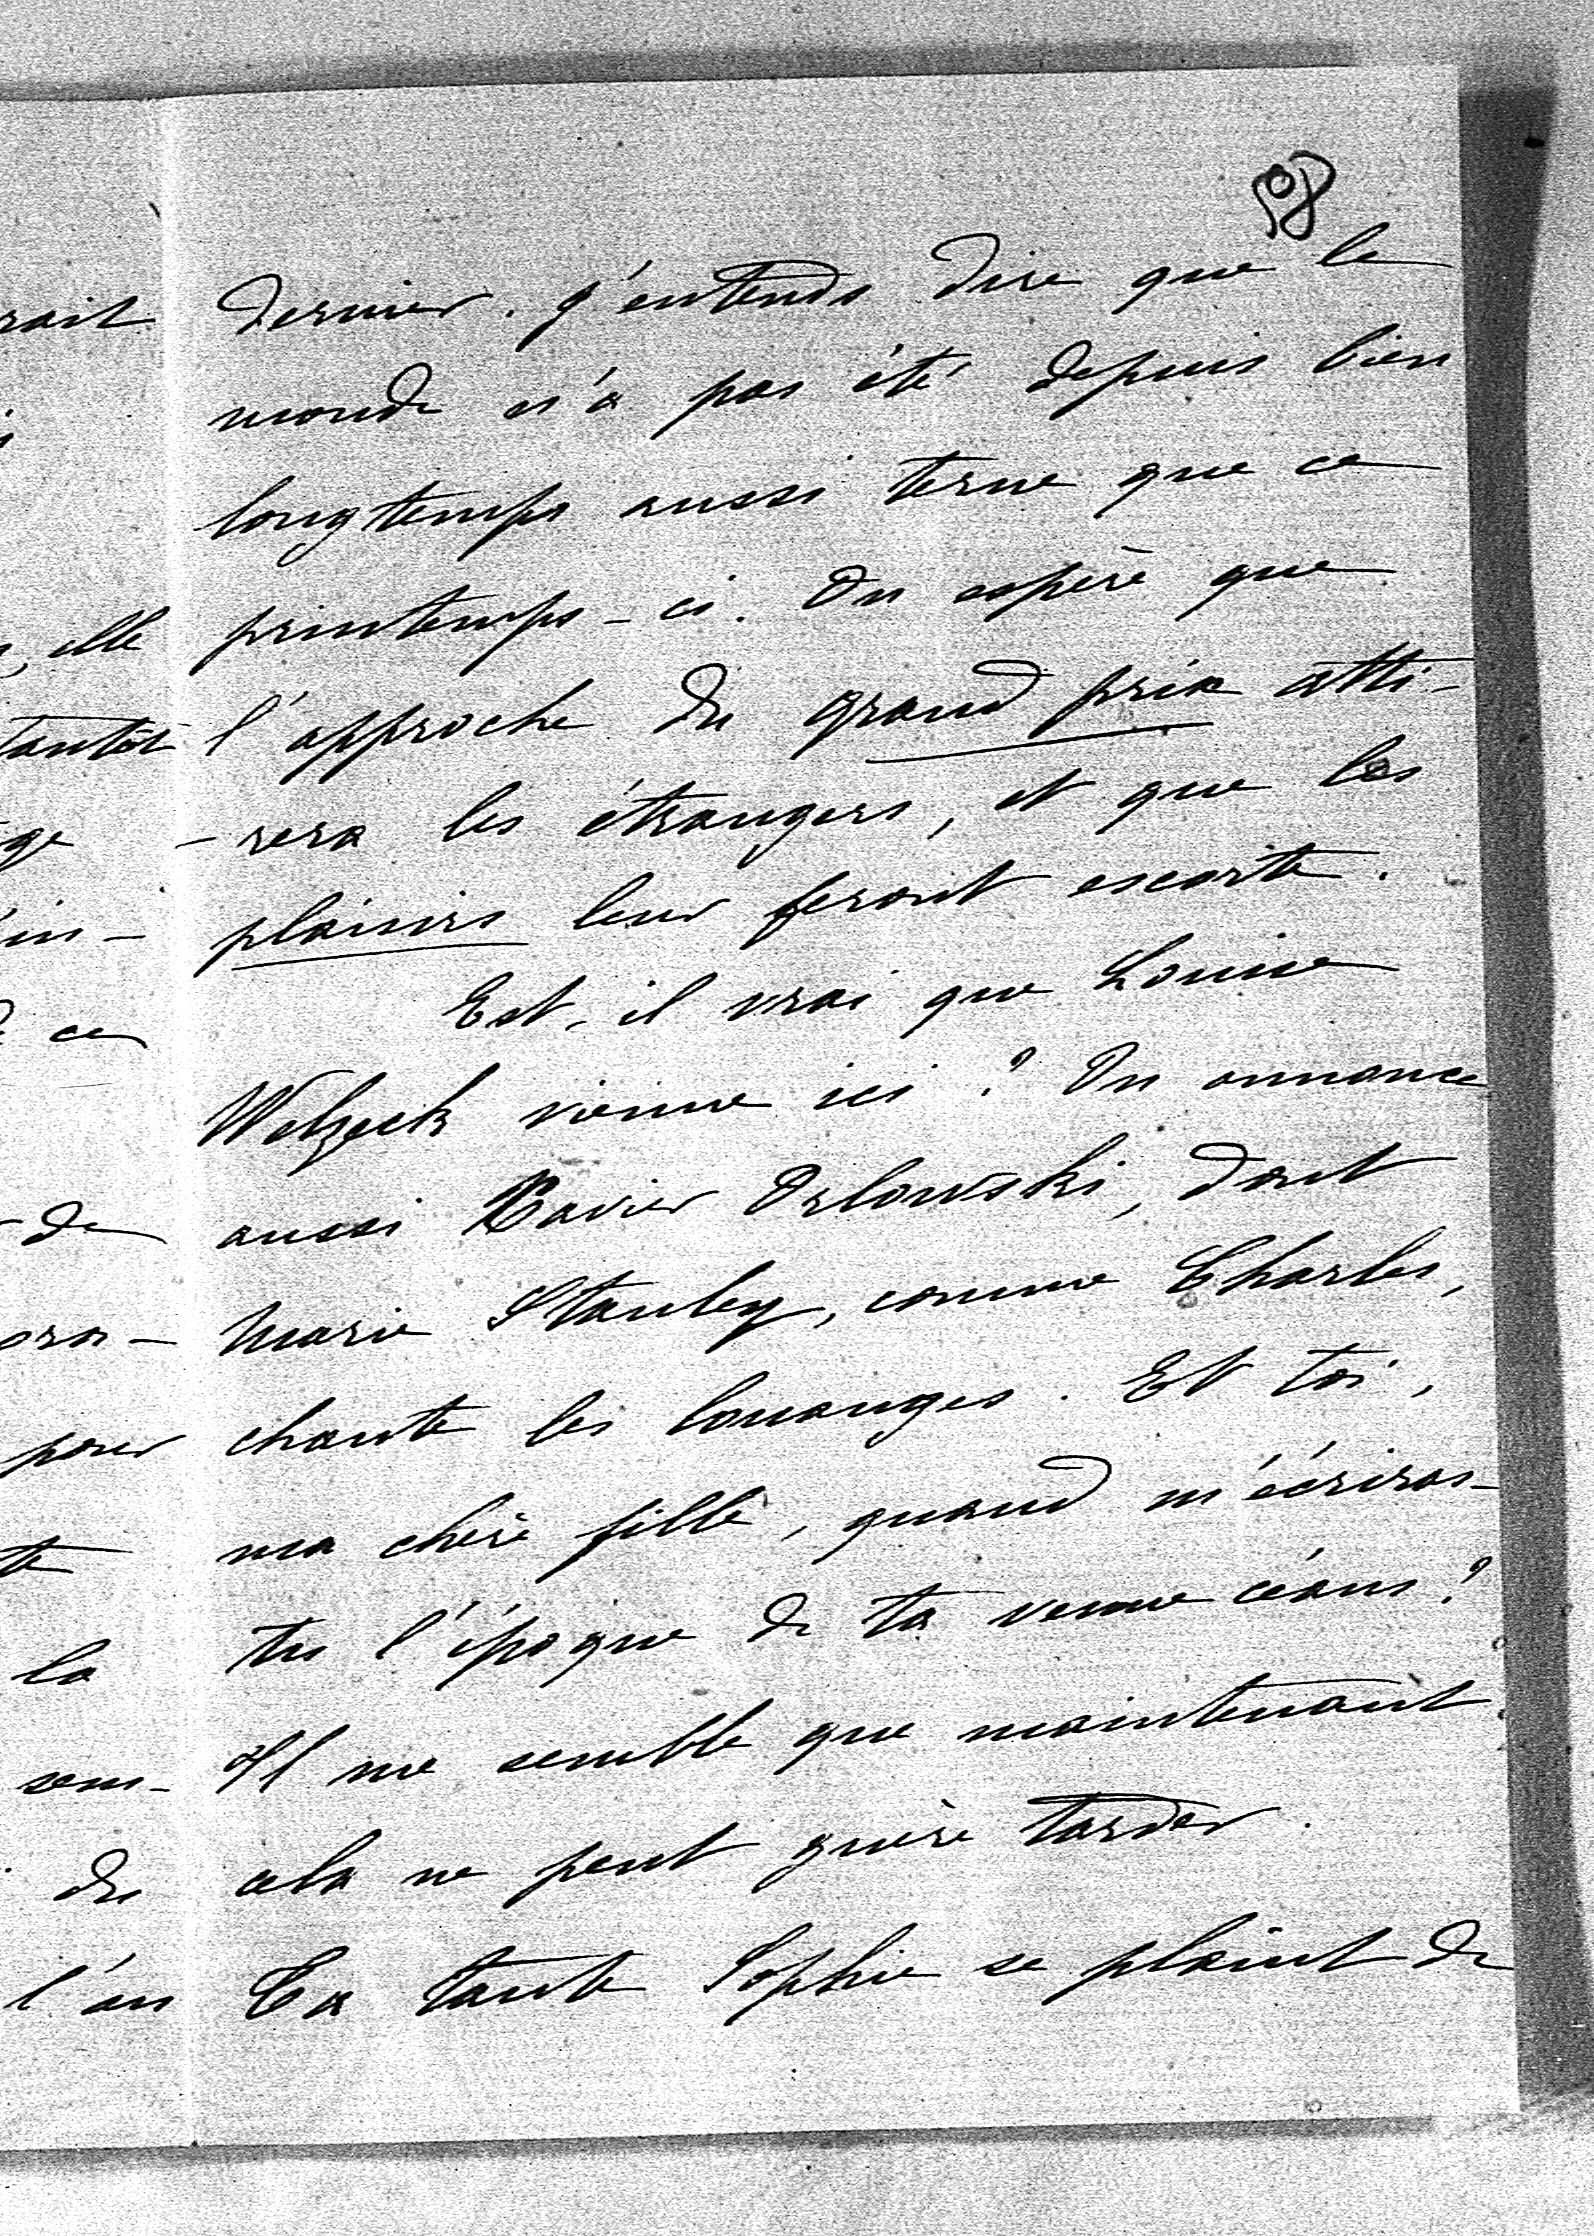 108
dernier. J'entends dire que le
monde n'a pas été depuis bien
longtemps aussi terne que ce
printemps-ci. On espère que
l'approche du grand prix atti-
-rera les étrangers, et que les
plaisirs leur feront escorte.
Est-il vrai que Louise
Welzeck vienne ici? On annonce
aussi Xavier Orlowski, dont
Marie Stanley, comme Charles,
chante les louanges. Et toi,
ma chère fille, quand m'écriras-
tu l'époque de ta venue céans?
Il me semble que maintenant
cela ne peut guère tarder.
Ta tante Sophie se plaint de
rait
, elle
tantôt
ge
in-
ce
de
pour
te
la
sem-
du
l'an